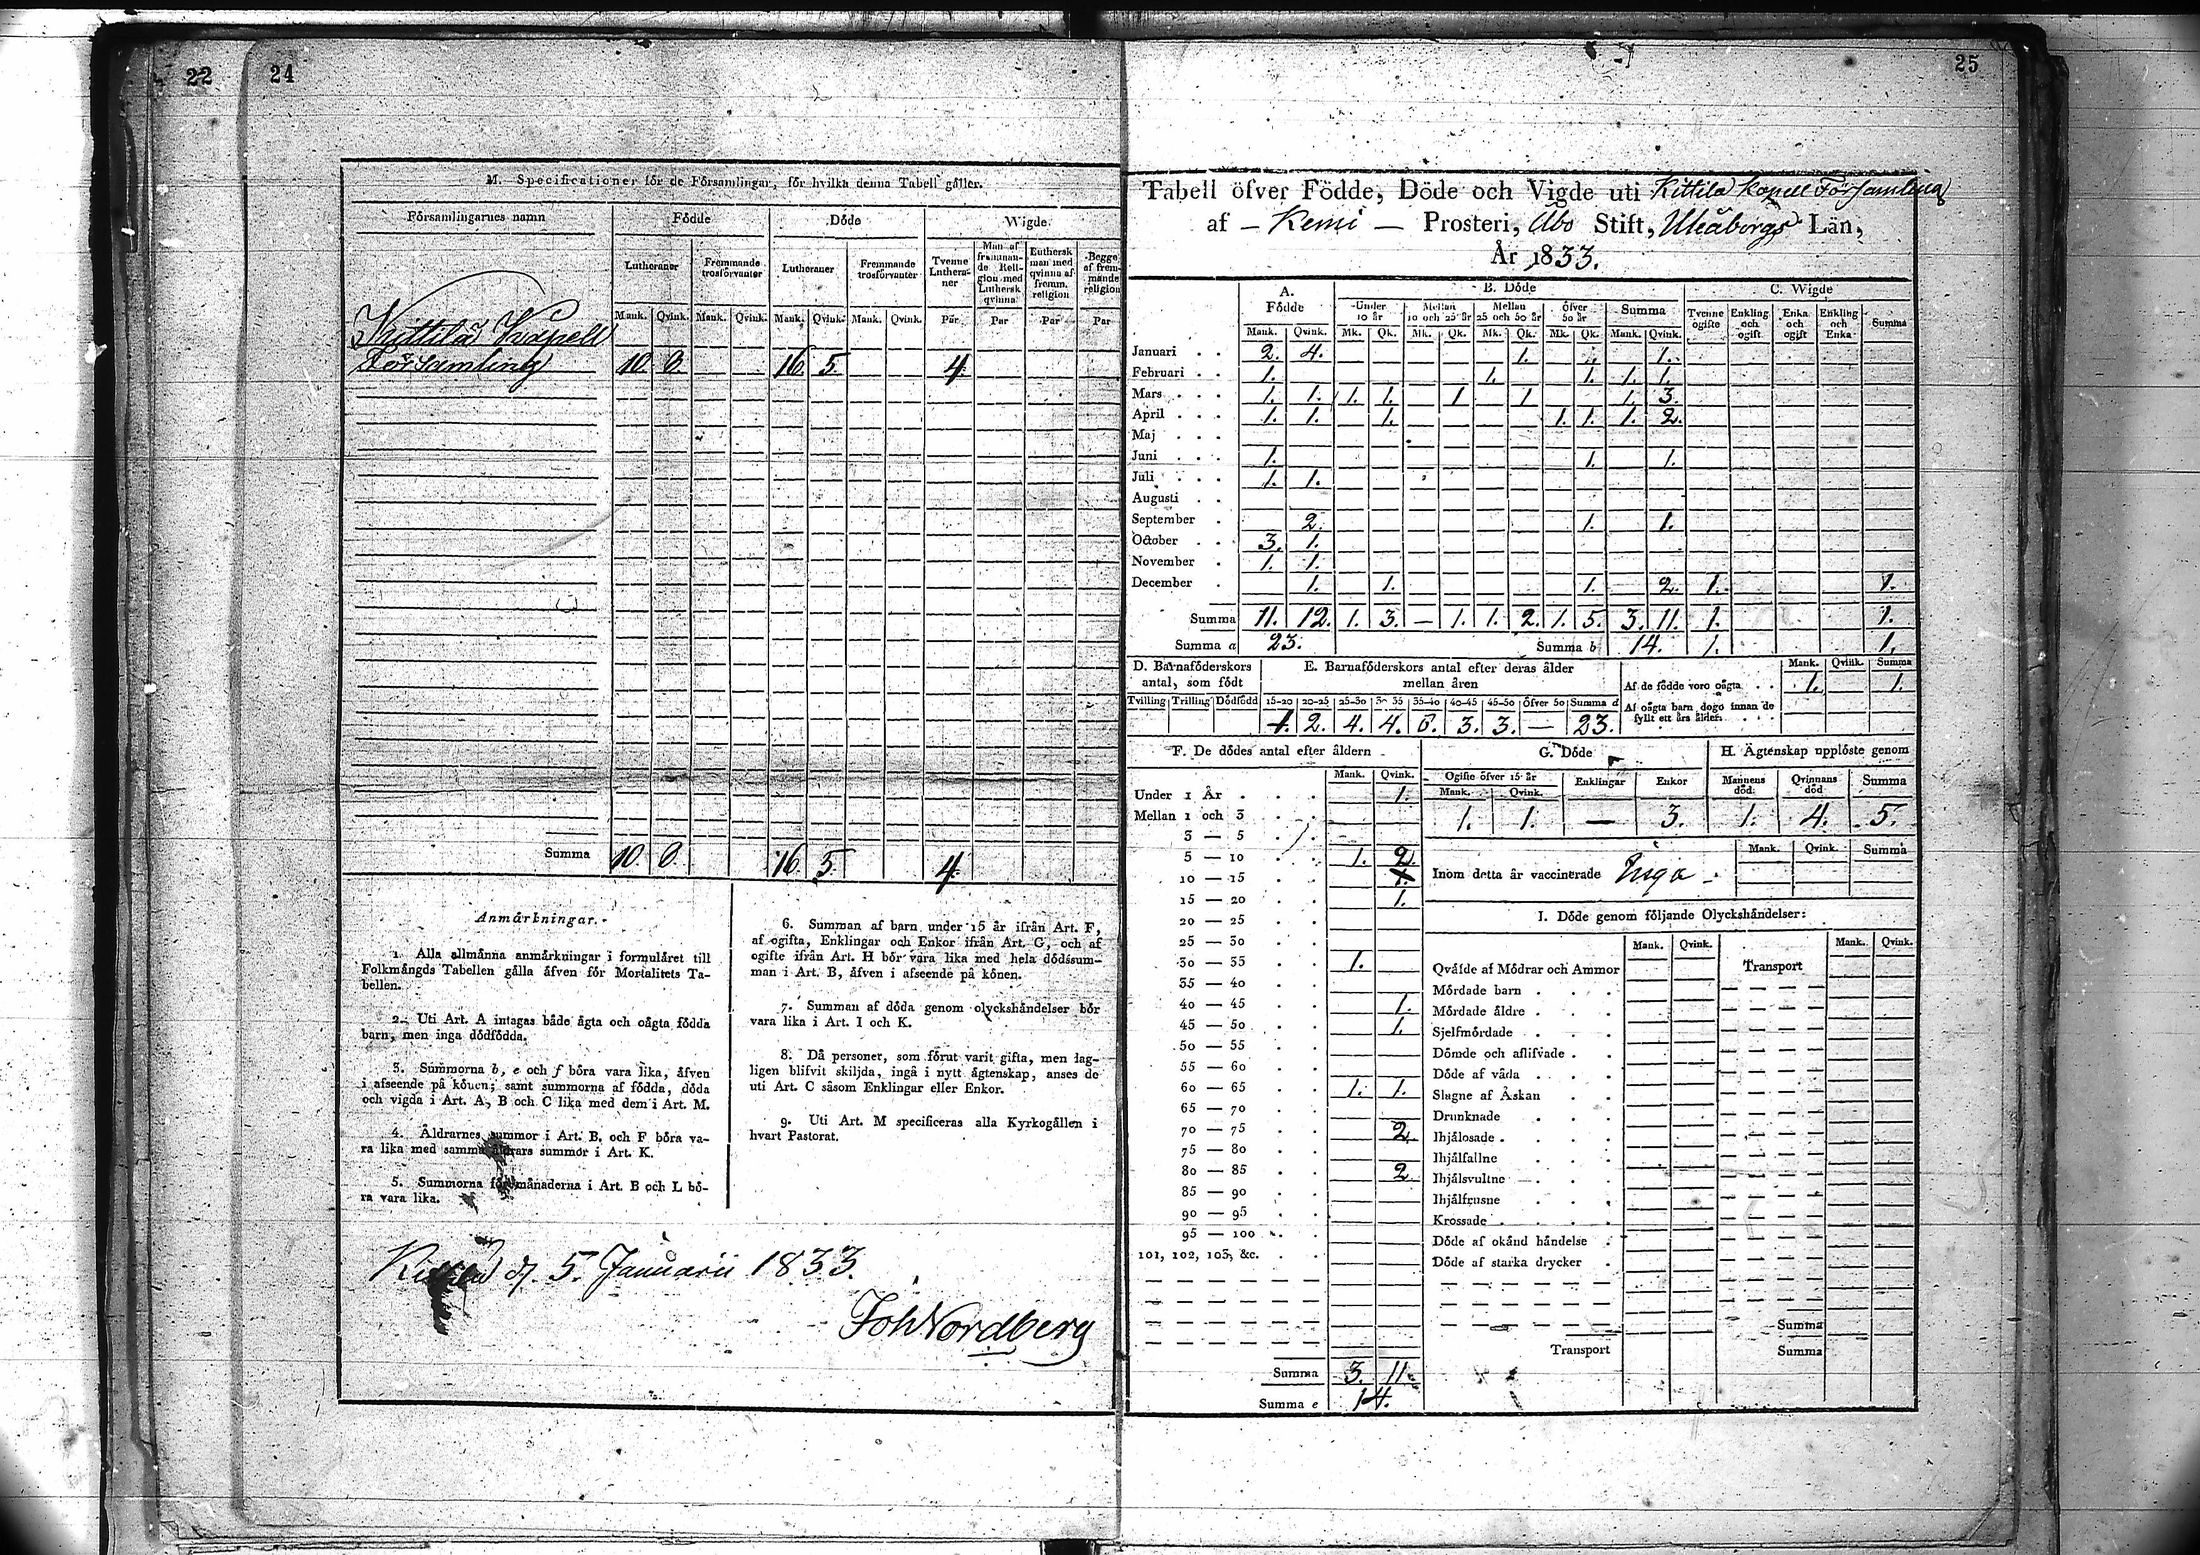 22
24
M. Specificationer för de Församlingar, för hvilka denna Tabell gäller.
Församlingarnes namn Födde Döde Wigde
Lutheraner Fremmande trosförvanter Lutheraner Fremmande trosförvanter Tvenne Lutheraner Man af främmande Religion med Luthersk qvinna Luthersk man med qvinna af fremm. religion Begge af fremmande religion
Mank. Qvink. Mank. Qvink. Mank. Qvink. Mank. Qvink. Par Par Par Par
Kittilä Kapell
Församling 10. 0. 16. 5. 4.
Summa 10. 0. 16. 5. 4.
Anmärkningar.
1. Alla allmänna anmärkningar i formuläret till
Folkmängds Tabellen gälla äfven för Mortalitets Ta-
bellen.
2. Uti Art. A intagas både ägta och oägta födda
barn, men inga dödfödda.
3. Summorna b, e och f böra vara lika, äfven
i afseende på könen; samt summorna af födda, döda
och vigda i Art. A, B och C lika med dem i Art. M.
4. Åldrarnes summor i Art. B. och F böra va-
ra lika med samma åldrars summor i Art. K.
5. Summorna för månaderna i Art. B och L bö-
ra vara lika.
6. Summan af barn under 15 år ifrån Art. F,
af ogifta, Enklingar och Enkor ifrån Art. G, och af
ogifte ifrån Art. H bör vara lika med hela dödssum-
man i Art. B, äfven i afseende på könen.
7. Summan af döda genom olyckshändelser bör
vara lika i Art. I och K.
8. Då personer, som förut varit gifta, men lag-
ligen blifvit skiljda, ingå i nytt ägtenskap, anses de
uti Art. C såsom Enklingar eller Enkor.
9. Uti Art. M specificeras alla Kyrkogällen i
hvart Pastorat.
5. Januarii 1833.
Joh Nordberg
25
Tabell öfver Födde, Döde och Vigde uti Kittilä Kapell Församling
af — Kemi — Prosteri, Åbo Stift, Uleåborgs Län,
År 1833.
A. Födde B. Döde C. Wigde
Under 10 år Mellan 10 och 25 år Mellan 25 och 50 år Öfver 50 år Summa Tvenne ogifte Enkling och ogift Enka och ogift Enkling och Enka Summa
Mank. Qvink. Mk. Qk. Mk. Qk. Mk. Qk. Mk. Qk. Mank. Qvink.
Januari 2. 4. 1. 1.
Februari 1. 1. 1. 1. 1.
Mars 1. 1. 1. 1. 1 1 1. 3.
April 1. 1. 1. 1. 1. 1. 2.
Maj
Juni 1. 1. 1.
Juli 1. 1.
Augusti
September 2. 1. 1.
October 3. 1.
November 1. 1.
December 1. 1. 1. 2. 1. 1.
Summa 11. 12. 1. 3. — 1. 1. 2. 1. 5. 3. 11. 1. 1.
Summa a 23. Summa b 14. 1. 1.
D. Barnaföderskors antal, som födt
Tvilling Trilling Dödfödd
E. Barnaföderskors antal efter deras ålder mellan åren
15-20 20-25 25-30 30 35 35-40 40-45 45-50 öfver 50 Summa d
1. 2. 4. 4. 6. 3. 3. — 23.
Mank. Qvink. Summa
Af de födde voro oägta 1. 1.
Af oägta barn dogo innan de
fyllt ett års ålder
F. De dödes antal efter åldern
Mank. Qvink.
Under 1 År 1.
Mellan 1 och 3
3 — 5
5 — 10 1. 2.
10 — 15
15 — 20 1.
20 — 25
25 — 30
30 — 35 1.
35 — 40
40 — 45 1.
45 — 50 1.
50 — 55
55 — 60
60 — 65 1. 1.
65 — 70
70 — 75 2.
75 — 80
80 — 85 2.
85 — 90
90 — 95
95 — 100
101, 102, 103, &c.
Summa 3. 11.
Summa e 14.
G. Döde
Ogifte öfver 15 år Enklingar Enkor
Mank. Qvink.
1. 1. — 3.
H. Ägtenskap upplöste genom
Mannens död Qvinnans död Summa
1. 4. 5.
Mank. Qvink. Summa
Inom detta år vaccinerade Inga
I. Döde genom följande Olyckshändelser:
Mank. Qvink. Mank. Qvink.
Qväfde af Mödrar och Ammor Transport
Mördade barn
Mördade äldre
Sjelfmördade
Dömde och aflifvade
Döde af våda
Slagne af Åskan
Drunknade
Ihjälosade
Ihjälfallne
Ihjälsvultne
Ihjälfrusne
Krossade
Döde af okänd händelse
Döde af starka drycker
Summa
Transport Summa